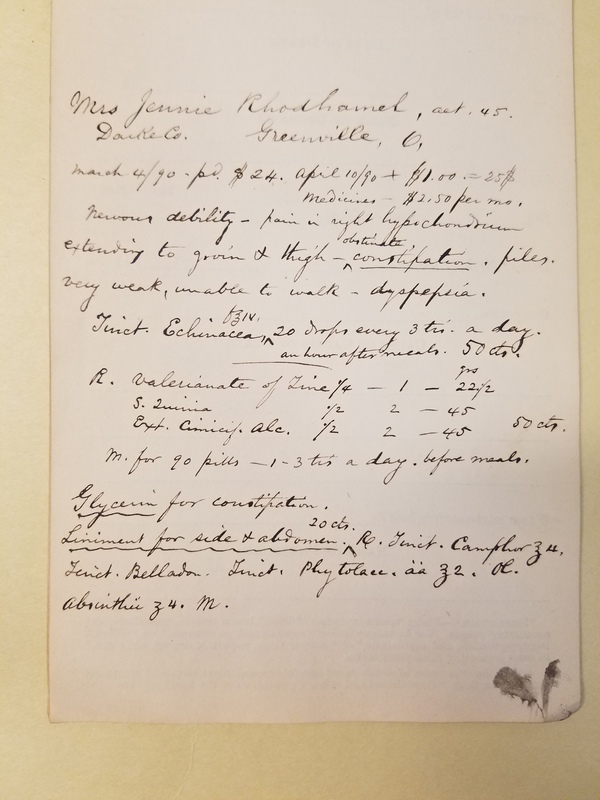 Mrs Jennie Rhodhamel, aet. 45.
Darke Co. Greenville, O,
March 4/90 - pd. $24. April 10/90 + $1.00 = 25$
Medicines - $2.50 per mo.
Nervous debility - pain in right hypochondrium
extending to groin & thigh - obstinate constipation. piles.
very weak, unable to walk - dyspepsia.
Tinct. Echinacea, 20 drops every 3 tis. a day.
an hour after meals. 50 cts.
R. Valerianate of Zinc 1/4 - 1 - grs 22 1/2
S. Quinia 1/2 2 - 45
Ext. Cimicif. Alc. 1/2 2 - 45 50 cts.
M. for 90 pills - 1 - 3 tis a day. before meals.
Glycerin for constipation.
Liniment for side & abdomen. 20 cts. R. Tinct. Camphor ʒ 4.
Tinct. Belladon. Tinct. Phytolacc. āā ʒ 2. Ol.
Absinthii ʒ 4. M.